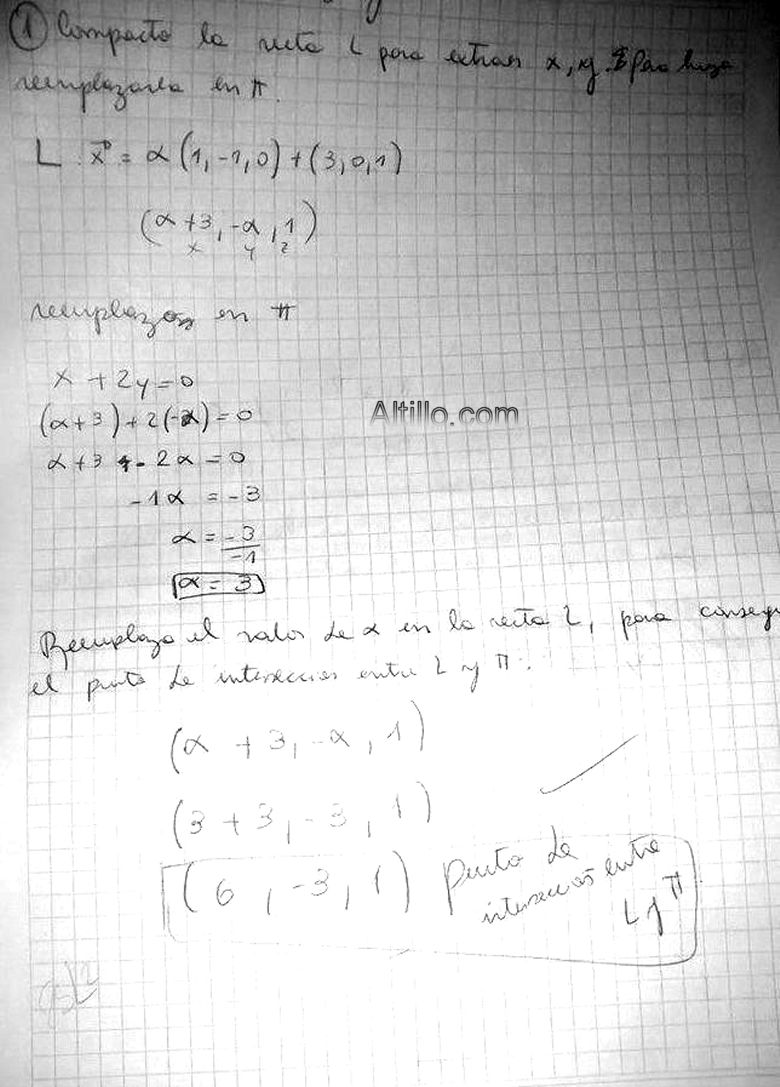 ① Compacto la recta L para extraer x, y, z para luego
reemplazarla en π.
L: x⃗ = α(1,-1,0)+(3,0,1)
(α+3, -α, 1)
x y z
reemplazo en π
x + 2y = 0
(α+3)+2(-α)=0
α+3 - 2α = 0
-1α = -3
α = -3/-1
α = 3
Altillo.com
Reemplazo el valor de α en la recta L, para consegu
el punto de interseccion entre L y π:
(α + 3, -α, 1)
(3 + 3, -3, 1)
(6, -3, 1) punto de
interseccion entre
L y π